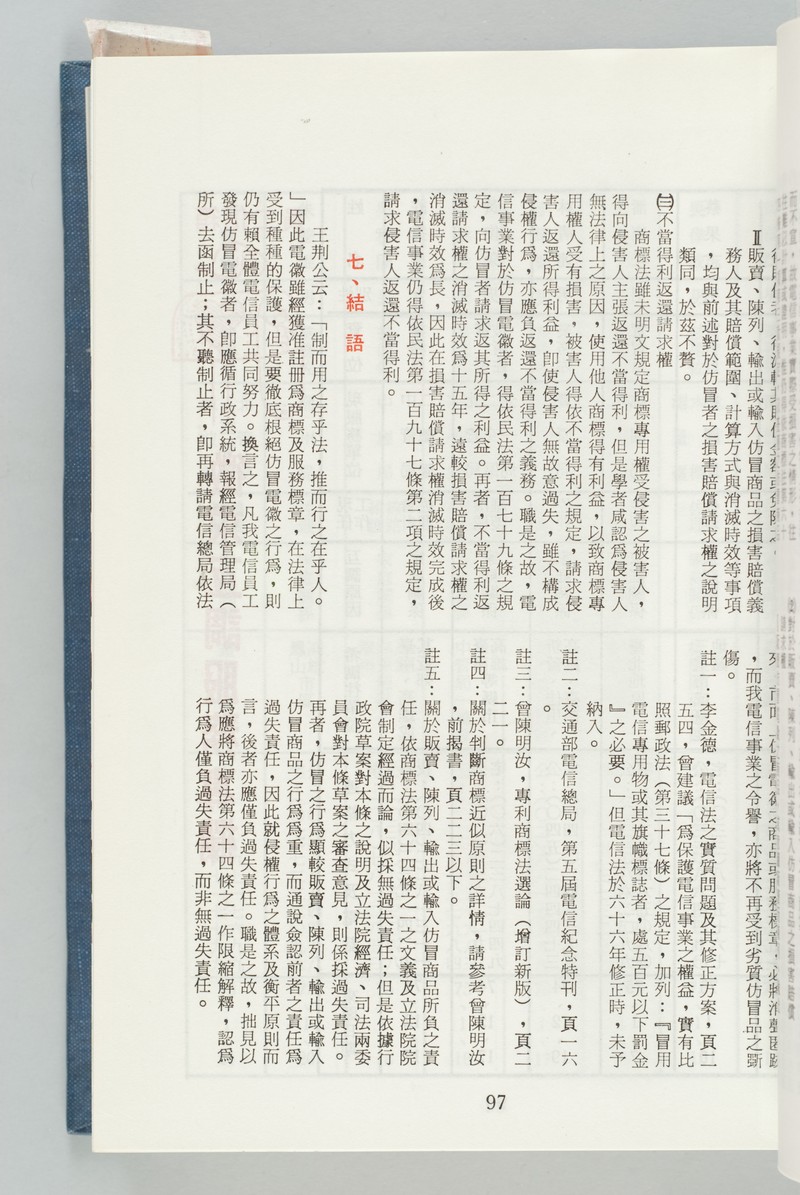 Ⅱ販賣、陳列、輸出或輸入仿冒商品之損害賠償義
務人及其賠償範圍、計算方式與消滅時效等事項
，均與前述對於仿冒者之損害賠償請求權之說明
類同，於茲不贅。
㈢不當得利返還請求權
商標法雖未明文規定商標專用權受侵害之被害人，
得向侵害人主張返還不當得利，但是學者咸認爲侵害人
無法律上之原因，使用他人商標得有利益，以致商標專
用權人受有損害，被害人得依不當得利之規定，請求侵
害人返還所得利益，卽使侵害人無故意過失，雖不構成
侵權行爲，亦應負返還不當得利之義務。職是之故，電
信事業對於仿冒電徽者，得依民法第一百七十九條之規
定，向仿冒者請求返其所得之利益。再者，不當得利返
還請求權之消滅時效爲十五年，遠較損害賠償請求權之
消滅時效爲長，因此在損害賠償請求權消滅時效完成後
，電信事業仍得依民法第一百九十七條第二項之規定，
請求侵害人返還不當得利。
七、結　語
王荆公云：「制而用之存乎法，推而行之在乎人。
」因此電徽雖經獲准註册爲商標及服務標章，在法律上
受到種種的保護，但是要徹底根絕仿冒電徽之行爲，則
仍有賴全體電信員工共同努力。換言之，凡我電信員工
發現仿冒電徽者，卽應循行政系統，報經電信管理局（
所）去函制止；其不聽制止者，卽再轉請電信總局依法
，而我電信事業之令譽，亦將不再受到劣質仿冒品之斲
傷。
註一：李金德，電信法之實質問題及其修正方案，頁二
五四，曾建議「爲保護電信事業之權益，實有比
照郵政法（第三十七條）之規定，加列：『冒用
電信專用物或其旗幟標誌者，處五百元以下罰金
』之必要。」但電信法於六十六年修正時，未予
納入。
註二：交通部電信總局，第五屆電信紀念特刊，頁一六
。
註三：曾陳明汝，專利商標法選論（增訂新版），頁二
二一。
註四：關於判斷商標近似原則之詳情，請參考曾陳明汝
，前揭書，頁二二三以下。
註五：關於販賣、陳列、輸出或輸入仿冒商品所負之責
任，依商標法第六十四條之一之文義及立法院院
會制定經過而論，似採無過失責任；但是依據行
政院草案對本條之說明及立法院經濟、司法兩委
員會對本條草案之審查意見，則係採過失責任。
再者，仿冒之行爲顯較販賣、陳列、輸出或輸入
仿冒商品之行爲爲重，而通說僉認前者之責任爲
過失責任，因此就侵權行爲之體系及衡平原則而
言，後者亦應僅負過失責任。職是之故，拙見以
爲應將商標法第六十四條之一作限縮解釋，認爲
行爲人僅負過失責任，而非無過失責任。
97